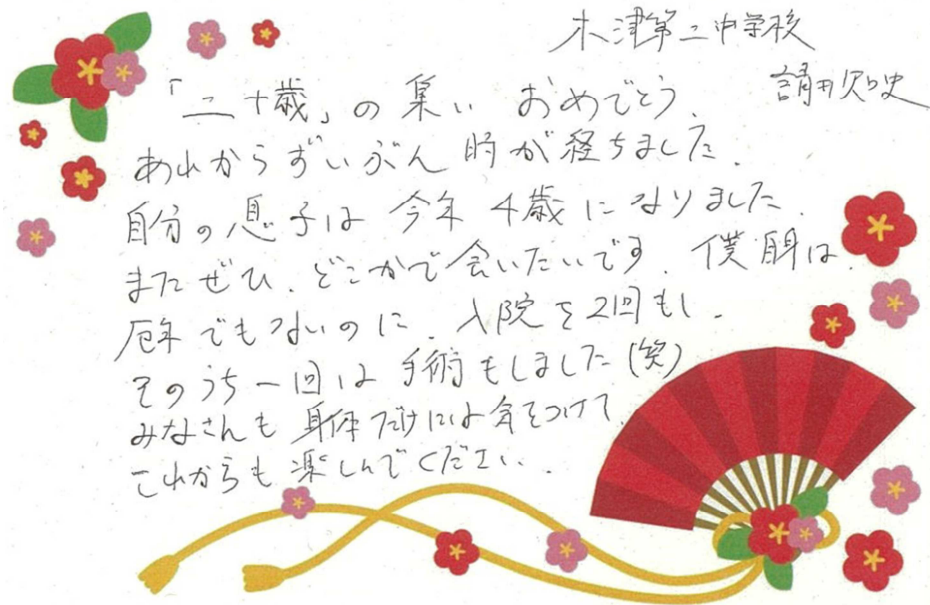 木津第二中学校
請田知史
「二十歳」の集い おめでとう、
あれからずいぶん 時が経ちました。
自分の息子は 今年 4歳になりました。
またぜひ、どこかで会いたいです。僕自身は、
厄年でもないのに、入院を2回もし、
そのうち一回は 手術もしました(笑)
みなさんも 身体だけには気をつけて、
これからも楽しんでください。